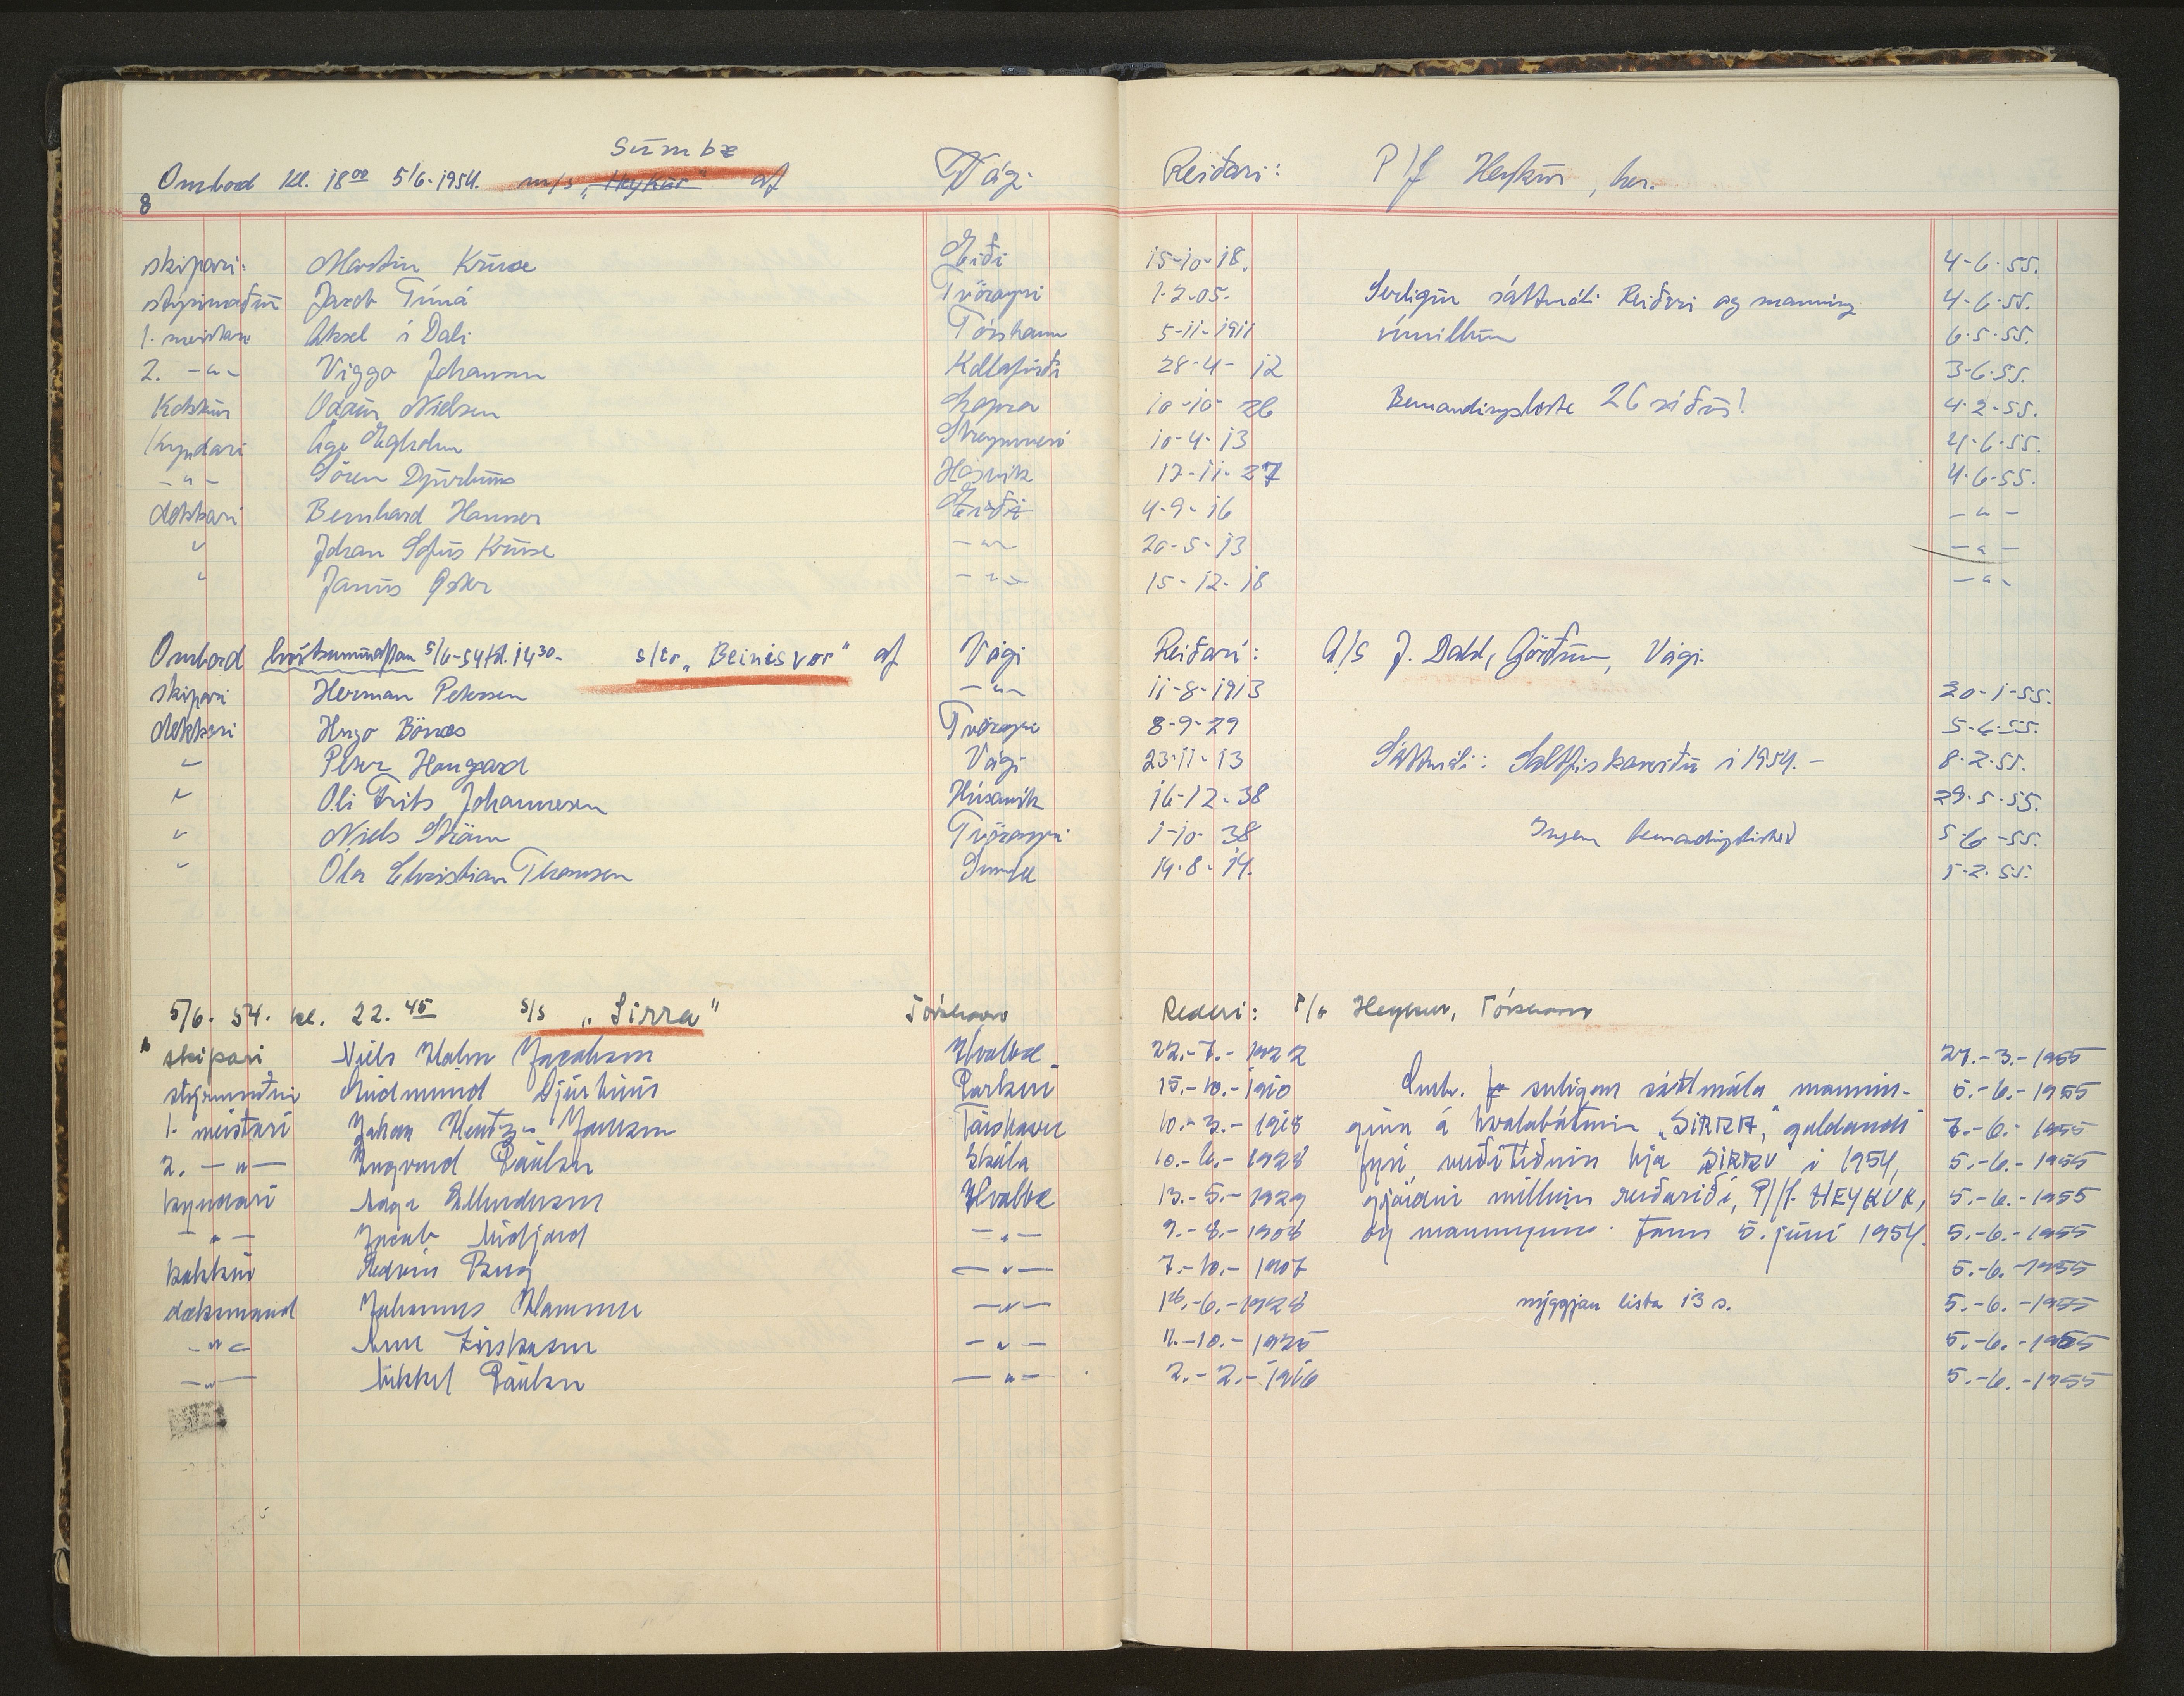 Sumbæ
Ombod kl. 18⁰⁰ 5/6-1954. m/s „Heykur" af Vági Reiðari: P/f Heykur, her.
8
skipari: Martin Kruse Eiði 15-10-18. 4-6-55.
stýrimaður Jacob Tvørayri 1-2-05. Serligur sáttmáli Reiðari og manning 4-6-55.
1. meistari Aksel í Dali Tórshavn 5-11-1911 ímillum 6-5-55.
2. -"- Viggo Johansen Kollafirði 28-4-12 3-6-55.
Kokkur Nielsen Lopra 10-10-26 Bemandingsliste 26 síður! 4-2-55.
Kyndari Åge Egholm Streymnesi 10-4-13 4-6-55.
-"- Sören Djurhuus Hósvík 17-11-27 4-6-55.
dekkari Bernhard Hammer Eiði 4-9-16 -"-
" Johan Sofus Kruse -"- 20-5-13 -"-
" Janus -"- 15-12-18 -"-
Ombod 5/6-54 kl. 14³⁰- s/tr „Beinisvør" af Vági Reiðari: A/S J. Dahl, Görðum, Vági.
skipari Herman Petersen -"- 11-8-1913 20-1-55.
dekkari Hugo Tvørayri 8-9-29 5-6-55.
" Peter Haugaard Vági 23-11-13 Sáttmáli: Saltfiskaveiðu í 1954.- 8-2-55.
" Oli Frits Johannesen Húsavík 16-12-38 29-5-55.
" Niels Tvørayri 1-10-38 Ingen bemandingsliste 5-6-55.
" Óla Christian Thomsen Sumba 14-8-14. 5-2-55.
5/6. 54. kl. 22.45 s/s „Sirra" Tórshavn Rederi: P/f Heykur, Tórshavn
skipari Niels Holm Jacobsen Hvalba 22.-7.-1922 27.-3.-1955
stýrimaður Gudmund Djurhuus Porkeri 15.-10.-1910 Smbr. serligan sáttmála mannin- 5.-6.-1955
1. meistari Johan Hentze Joensen Tórshavn 10.-3.-1918 gina á hvalabátinum „SIRRA," galdandi 7.-6.-1955
2. -"- Ingvard Poulsen Skála 10.-6.-1928 fyri veiðitíðina hjá SIRRU í 1954, 5.-6.-1955
kyndari Aage Hvalba 13.-5.-1929 gjørdur millum reiðaríið, P/f. HEYKUR, 5.-6.-1955
-"- Jacob Midjord -"- 9.-8.-1908 og manningina tann 5. juni 1954. 5.-6.-1955
kokkur -"- 7.-10.-1907 5.-6.-1955
dæksmand Johannus Hammer -"- 16.-6.-1928 nýggjan lista 13 s. 5.-6.-1955
-"- -"- 11.-10.-1925 5.-6.-1955
-"- Mikkel Poulsen -"- 2.-2.-1916 5.-6.-1955